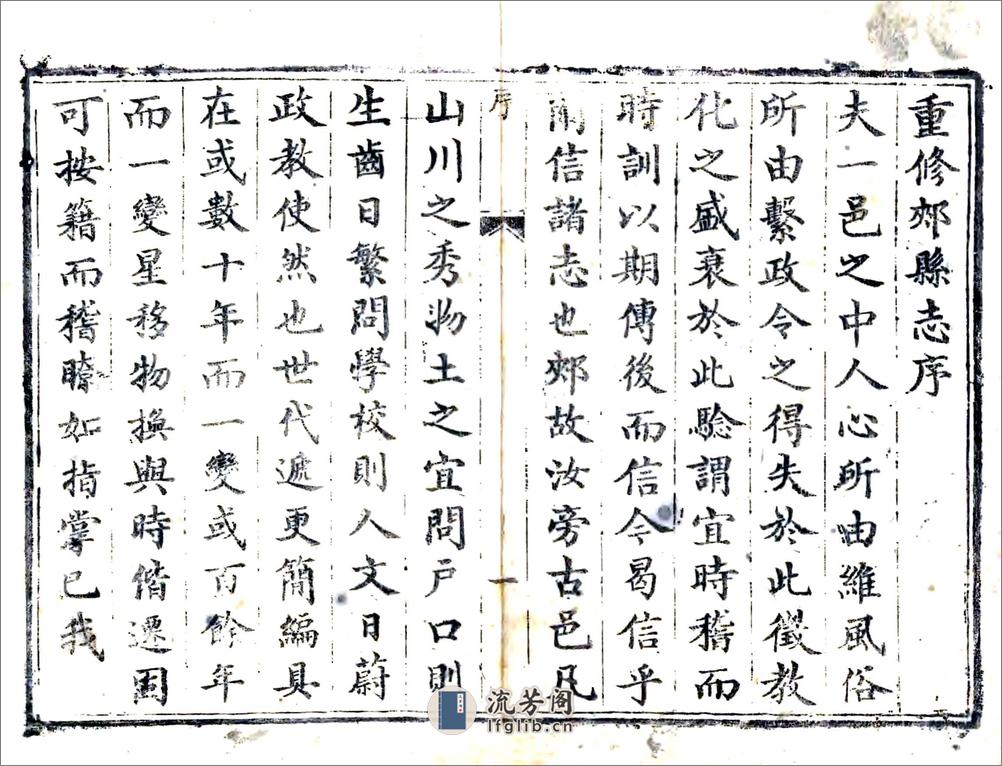 重修郟縣志序
夫一邑之中人心所由維風俗
所由繫政令之得失於此徵教
化之盛衰於此驗謂宜時稽而
時訓以期傳後而信今曷信乎
爾信諸志也郟故汝旁古邑凡
序
一
山川之秀物土之宜問戶口則
生齒日繁問學校則人文日蔚
政教使然也世代遞更簡編具
在或數十年而一變或百餘年
而一變星移物換與時偕遷固
可按籍而稽瞭如指掌已我
流芳阁
lfglib.cn